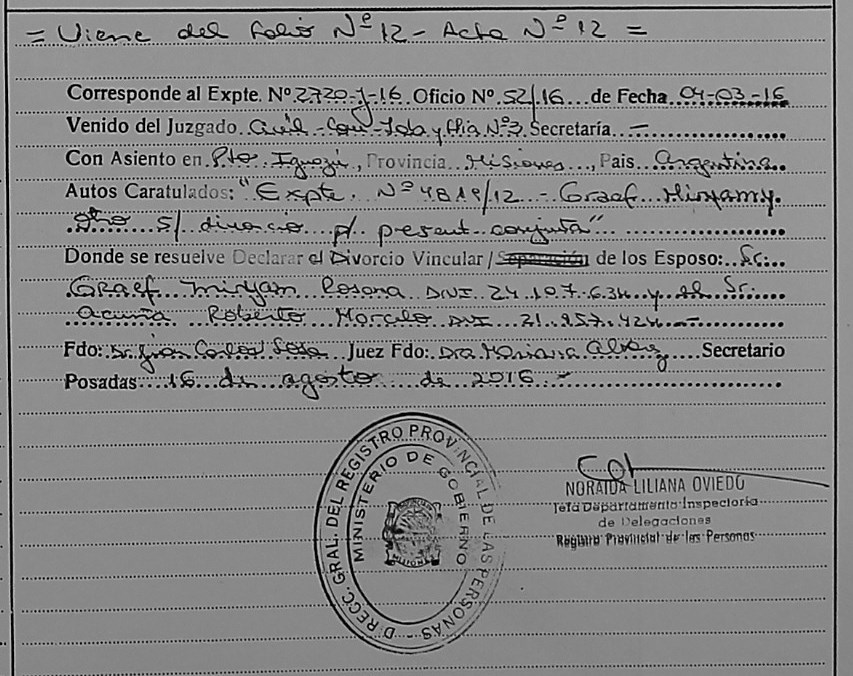 = Viene del folio Nº 12 - Acta Nº 12 =
Corresponde al Expte. Nº 2720-J-16 Oficio Nº 52/16 de Fecha 04-03-16
Venido del Juzgado Civil - Com - Lab y flia Nº 2 Secretaría -
Con Asiento en Pto. Iguazú, Provincia Misiones, Pais Argentina
Autos Caratulados: "Expte. Nº 4819/12 - Graef Miryam y
otro S/ divorcio p/ present. conjunta"
Donde se resuelve Declarar el Divorcio Vincular / Separación de los Esposo: Sr.
Graef Miryam Rosana DNI 24.107.634 y el Sr.
Acuña Roberto Marcelo DNI 21.957.424 -
Fdo: Dr. Juan Carlos Sosa Juez Fdo: Dra Mariana Secretario
Posadas 16 de agosto de 2016 -
DIRECC. GRAL. DEL REGISTRO PROVINCIAL DE LAS PERSONAS
MINISTERIO DE GOBIERNO
MISIONES
NORAIDA LILIANA OVIEDO
Jefa Departamento Inspectoria
de Delegaciones
Registro Provincial de las Personas